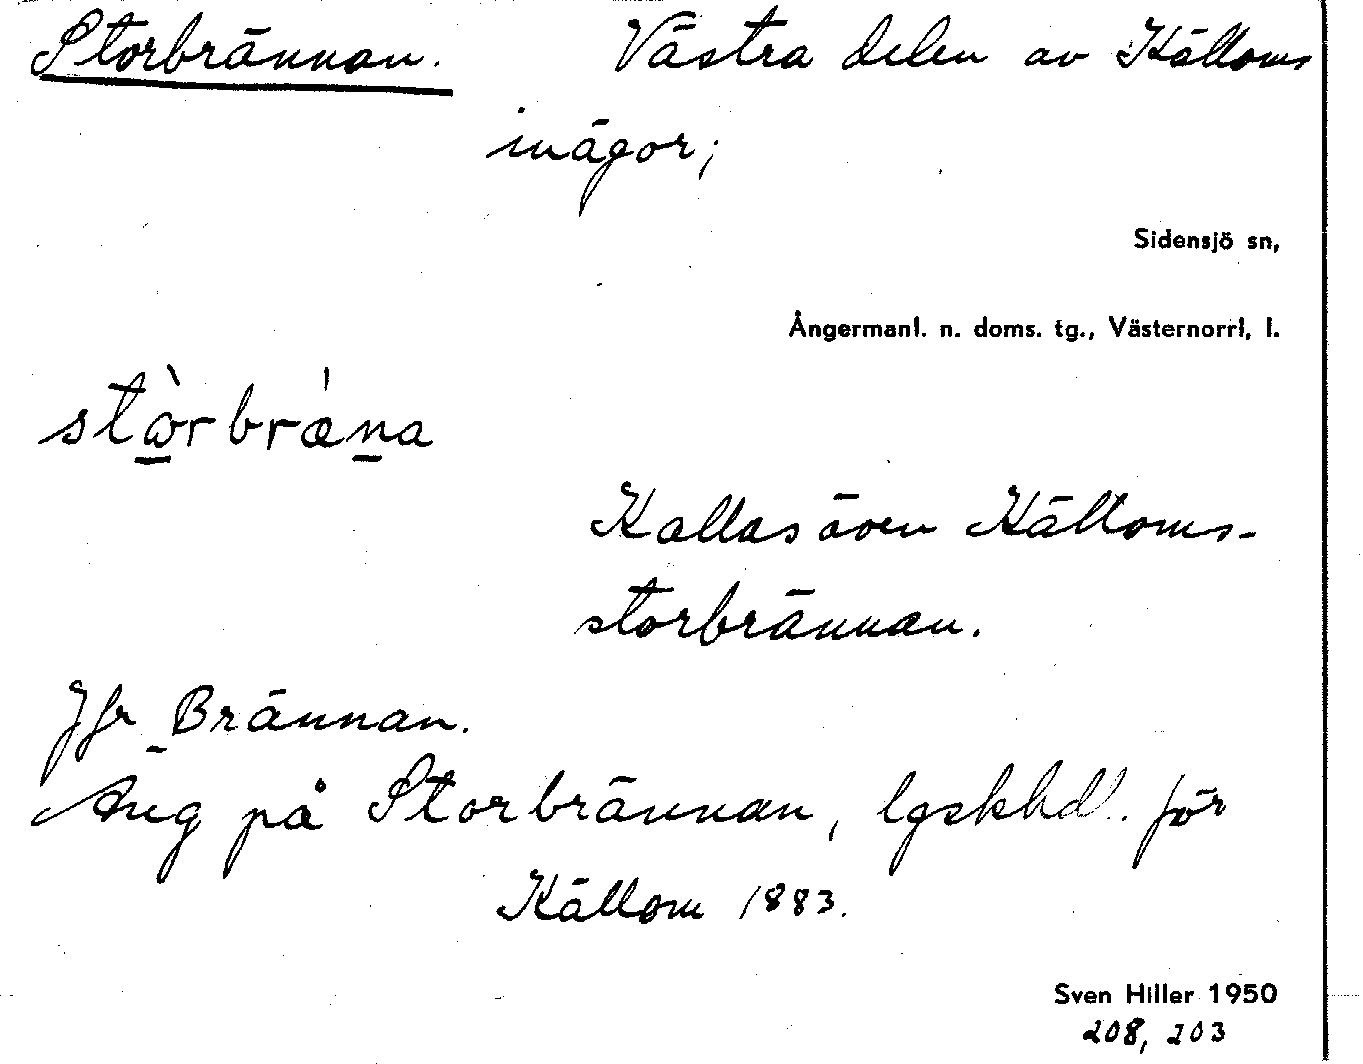 Storbrännan. Västra delen av Källoms
inägor;
Sidensjö sn,
Ångermanl. n. doms. tg., Västernorrl, l.
stò̱rbrǽṉa
Kallas även Källoms-
storbrännan.
Jfr Brännan.
Äng på Storbrännan, lgskhdl. för
Källom 1883.
Sven Hiller 1950
208, 203